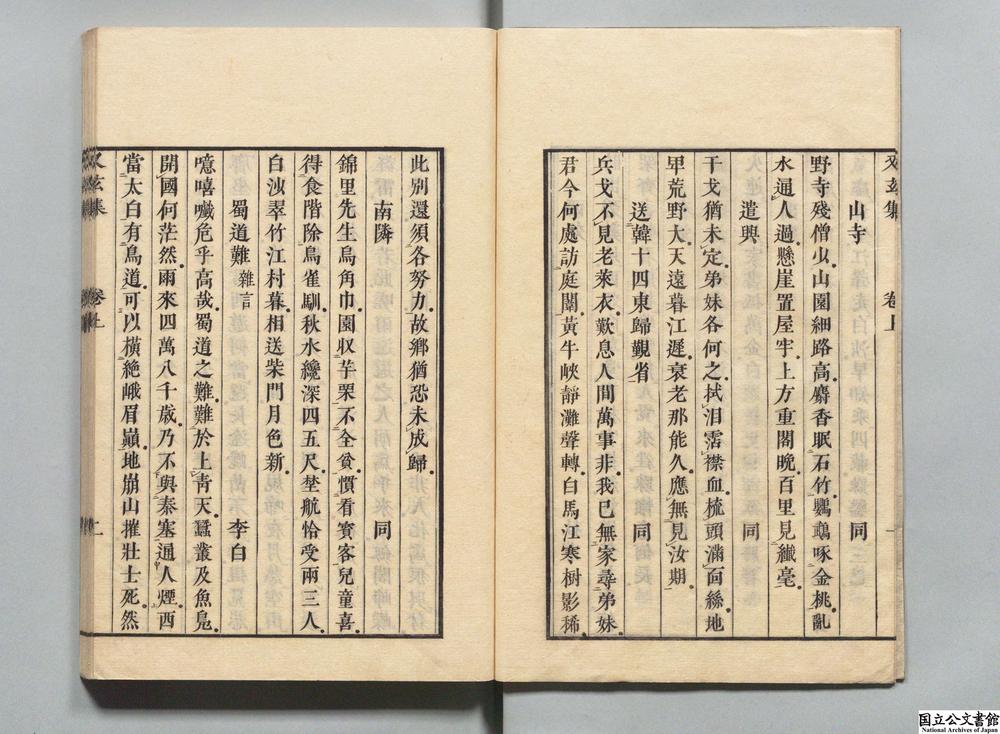 又玄集 卷上
山寺 同
野寺殘僧少山園細路高麝香眠石竹鸚鵡啄金桃亂
水通人過懸崖置屋牢上方重閣晚百里見纖毫
遣興 同
干戈猶未定弟妹各何之拭泪霑襟血梳頭滿面絲地
卑荒野大天遠暮江遲衰老那能久應無見汝期
送韓十四東歸覲省 同
兵戈不見老萊衣歎息人間萬事非我已無家尋弟妹
君今何處訪庭闈黃牛峽靜灘聲轉白馬江寒樹影稀
此別還須各努力故鄉猶恐未成歸
南隣 同
錦里先生烏角巾園収芋栗不全貧慣看賓客兒童喜
得食階除鳥雀馴秋水纔深四五尺埜航恰受兩三人
白沙翠竹江村暮相送柴門月色新
蜀道難 雜言 李白
噫嘻嚱危乎高哉蜀道之難難於上青天蠶叢及魚鳧
開國何茫然爾來四萬八千歲乃不與秦塞通人煙西
當太白有鳥道可以橫絶峨眉巓地崩山摧壯士死然
又玄集 卷上
国立公文書館
National Archives of Japan